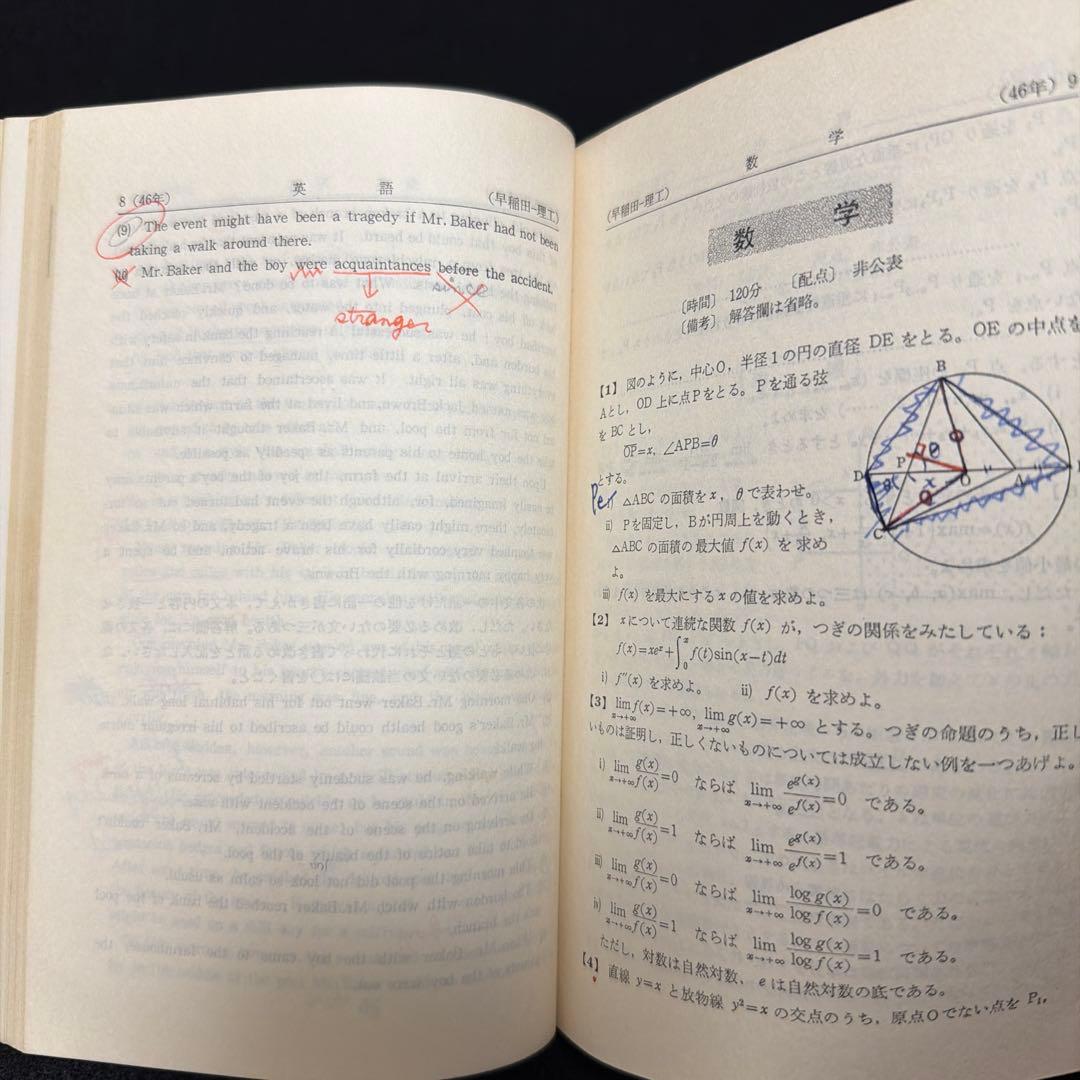 8 (46年) 英 語 (早稲田―理工)
(9) The event might have been a tragedy if Mr. Baker had not been
taking a walk around there.
(10) Mr. Baker and the boy were acquaintances before the accident.
stranger
(46年) 9
数 学
(早稲田―理工)
数 学
〔時間〕 120分 〔配点〕 非公表
〔備考〕 解答欄は省略。
【1】 図のように，中心O，半径1の円の直径 DE をとる。OE の中点を
Aとし，OD 上に点Pをとる。Pを通る弦
を BC とし，
OP=x, ∠APB=θ
とする。
△ABC の面積を x, θ で表わせ。
ii) Pを固定し，Bが円周上を動くとき，
△ABC の面積の最大値 f(x) を求め
よ。
iii) f(x) を最大にする x の値を求めよ。
B
D P θ O A
C
【2】 x について連続な関数 f(x) が，つぎの関係をみたしている：
f(x)=xeˣ+∫₀ˣ f(t)sin(x−t)dt
i) f″(x) を求めよ。 ii) f(x) を求めよ。
【3】 lim x→+∞ f(x)=+∞, lim x→+∞ g(x)=+∞ とする。つぎの命題のうち，正し
いものは証明し，正しくないものについては成立しない例を一つあげよ。
i) lim x→+∞ g(x)/f(x)=0 ならば lim x→+∞ e^g(x)/e^f(x)=0 である。
ii) lim x→+∞ g(x)/f(x)=1 ならば lim x→+∞ e^g(x)/e^f(x)=1 である。
iii) lim x→+∞ g(x)/f(x)=0 ならば lim x→+∞ log g(x)/log f(x)=0 である。
iv) lim x→+∞ g(x)/f(x)=1 ならば lim x→+∞ log g(x)/log f(x)=1 である。
ただし，対数は自然対数，e は自然対数の底である。
【4】 直線 y=x と放物線 y²=x の交点のうち，原点Oでない点を P₁,